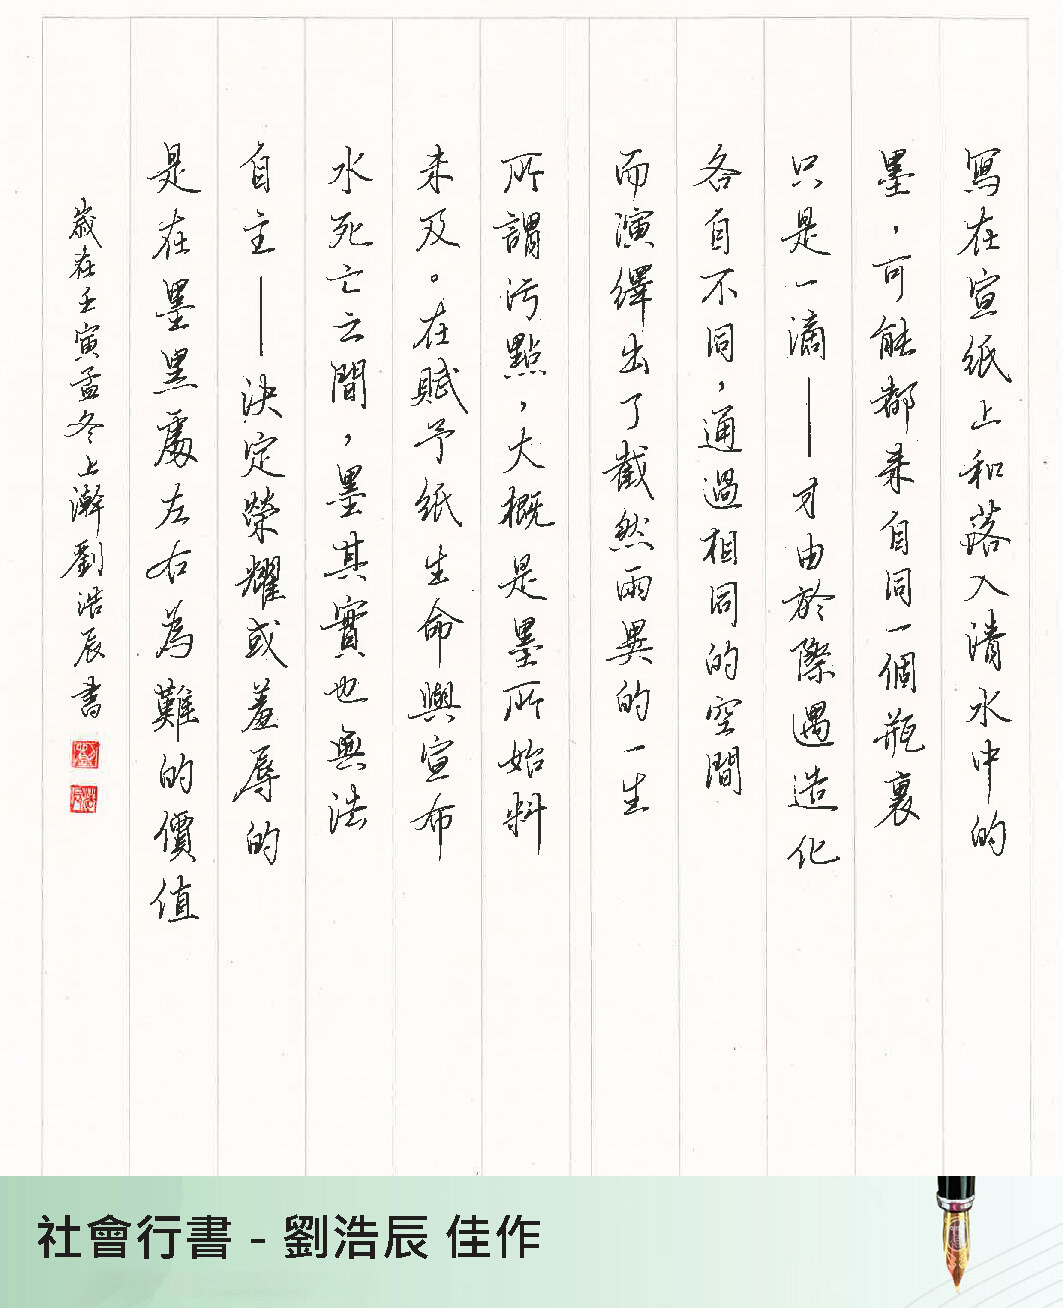 寫在宣紙上和落入清水中的
墨，可能都來自同一個瓶裏
只是一滴——才由於際遇造化
各自不同，通過相同的空間
而演繹出了截然兩異的一生
所謂污點，大概是墨所始料
未及。在賦予紙生命與宣布
水死亡之間，墨其實也無法
自主——決定榮耀或羞辱的
是在墨黑處左右為難的價值
歲在壬寅孟冬上澣劉浩辰書
社會行書 - 劉浩辰 佳作